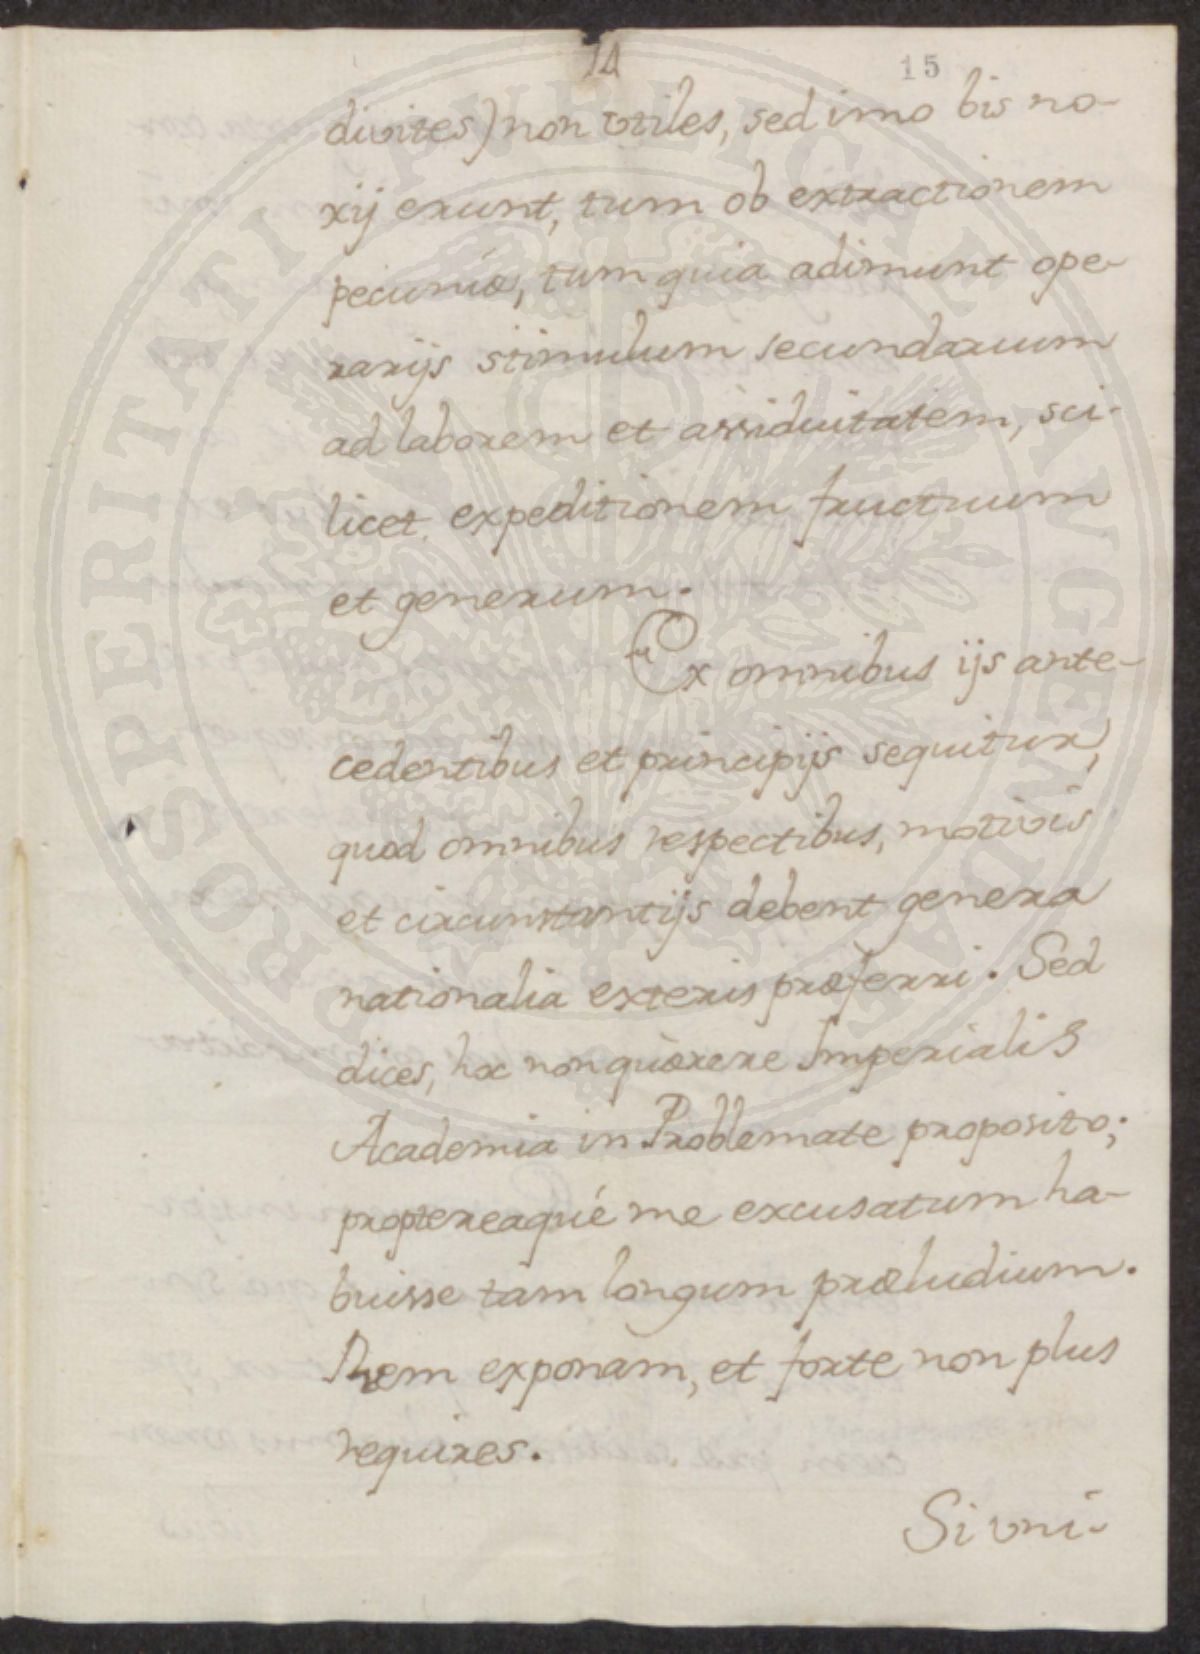 14
15
divites) non vtiles, sed imo bis no-
xij erunt, tum ob extractionem
pecuniæ, tum quia adimunt ope-
rarijs stimulum secundarium
ad laborem et assiduitatem, sci-
licet expeditionem fructuum
et generum.
Ex omnibus ijs ante-
cedentibus et principijs sequitur,
quod omnibus respectibus, motivis
et circunstantijs debent genera
nationalia exteris præferri. Sed
dices, hoc non quærere Imperialis
Academia in Problemate proposito;
proptereaqué me excusatum ha-
buisse tam longum præludium.
Rem exponam, et forte non plus
requires.
Si vni-
PROSPERITATI PVBLICAE AVGENDAE